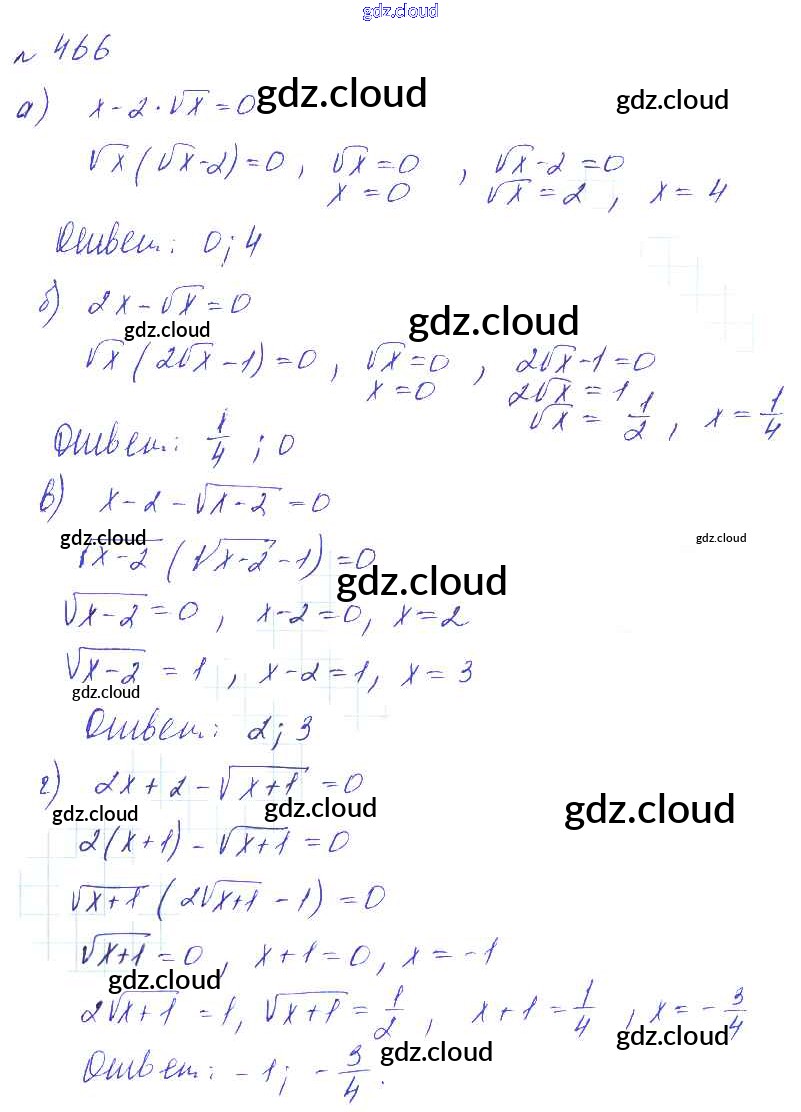 gdz.cloud
№ 466
а) x - 2 · √x = 0 gdz.cloud gdz.cloud
√x (√x - 2) = 0, √x = 0, √x - 2 = 0
x = 0 √x = 2, x = 4
Ответ: 0; 4
б) 2x - √x = 0
gdz.cloud gdz.cloud
√x (2√x - 1) = 0, √x = 0, 2√x - 1 = 0
x = 0 2√x = 1
√x = 1/2, x = 1/4
Ответ: 1/4; 0
в) x - 2 - √(x-2) = 0
gdz.cloud gdz.cloud
√(x-2) (√(x-2) - 1) = 0
gdz.cloud
√(x-2) = 0, x - 2 = 0, x = 2
√(x-2) = 1, x - 2 = 1, x = 3
gdz.cloud
Ответ: 2; 3
г) 2x + 2 - √(x+1) = 0
gdz.cloud gdz.cloud gdz.cloud
2(x+1) - √(x+1) = 0
√(x+1) (2√(x+1) - 1) = 0
√(x+1) = 0, x + 1 = 0, x = -1
gdz.cloud
2√(x+1) = 1, √(x+1) = 1/2, x + 1 = 1/4, x = -3/4
gdz.cloud
Ответ: -1; -3/4.
gdz.cloud